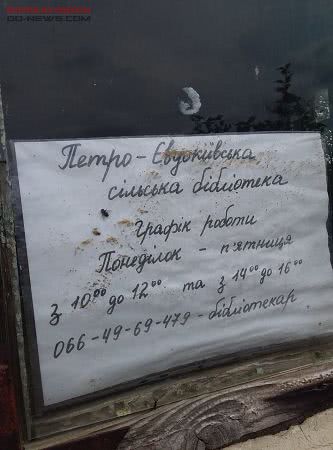 DO-NEWS.COM
Петро-Євдокіївська
сільська бібліотека
Графік роботи
Понеділок - п'ятниця
з 10⁰⁰ до 12⁰⁰ та з 14⁰⁰ до 16⁰⁰
066-49-69-479 - бібліотекар